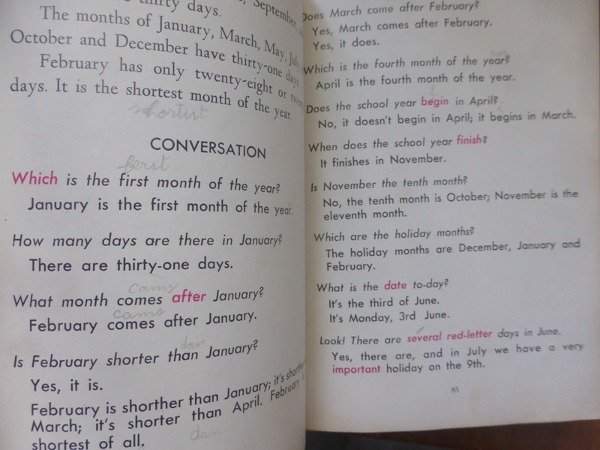 thirty days.
September,
The months of January, March, May, July,
October and December have thirty-one days.
February has only twenty-eight or
days. It is the shortest month of the year.
shortist
CONVERSATION
ferst
Which is the first month of the year?
January is the first month of the year.
How many days are there in January?
There are thirty-one days.
cams
What month comes after January?
cams
February comes after January.
dan
Is February shorter than January?
Yes, it is.
February is shorther than January; it's
March; it's shorter than April. February
shortest of all.
dan
Does March come after February?
Yes, March comes after February.
Yes, it does.
Which is the fourth month of the year?
April is the fourth month of the year.
Does the school year begin in April?
No, it doesn't begin in April; it begins in March.
When does the school year finish?
It finishes in November.
Is November the tenth month?
No, the tenth month is October; November is the
eleventh month.
Which are the holiday months?
The holiday months are December, January and
February.
What is the date to-day?
It's the third of June.
It's Monday, 3rd June.
Look! There are several red-letter days in June.
Yes, there are, and in July we have a very
important holiday on the 9th.
85